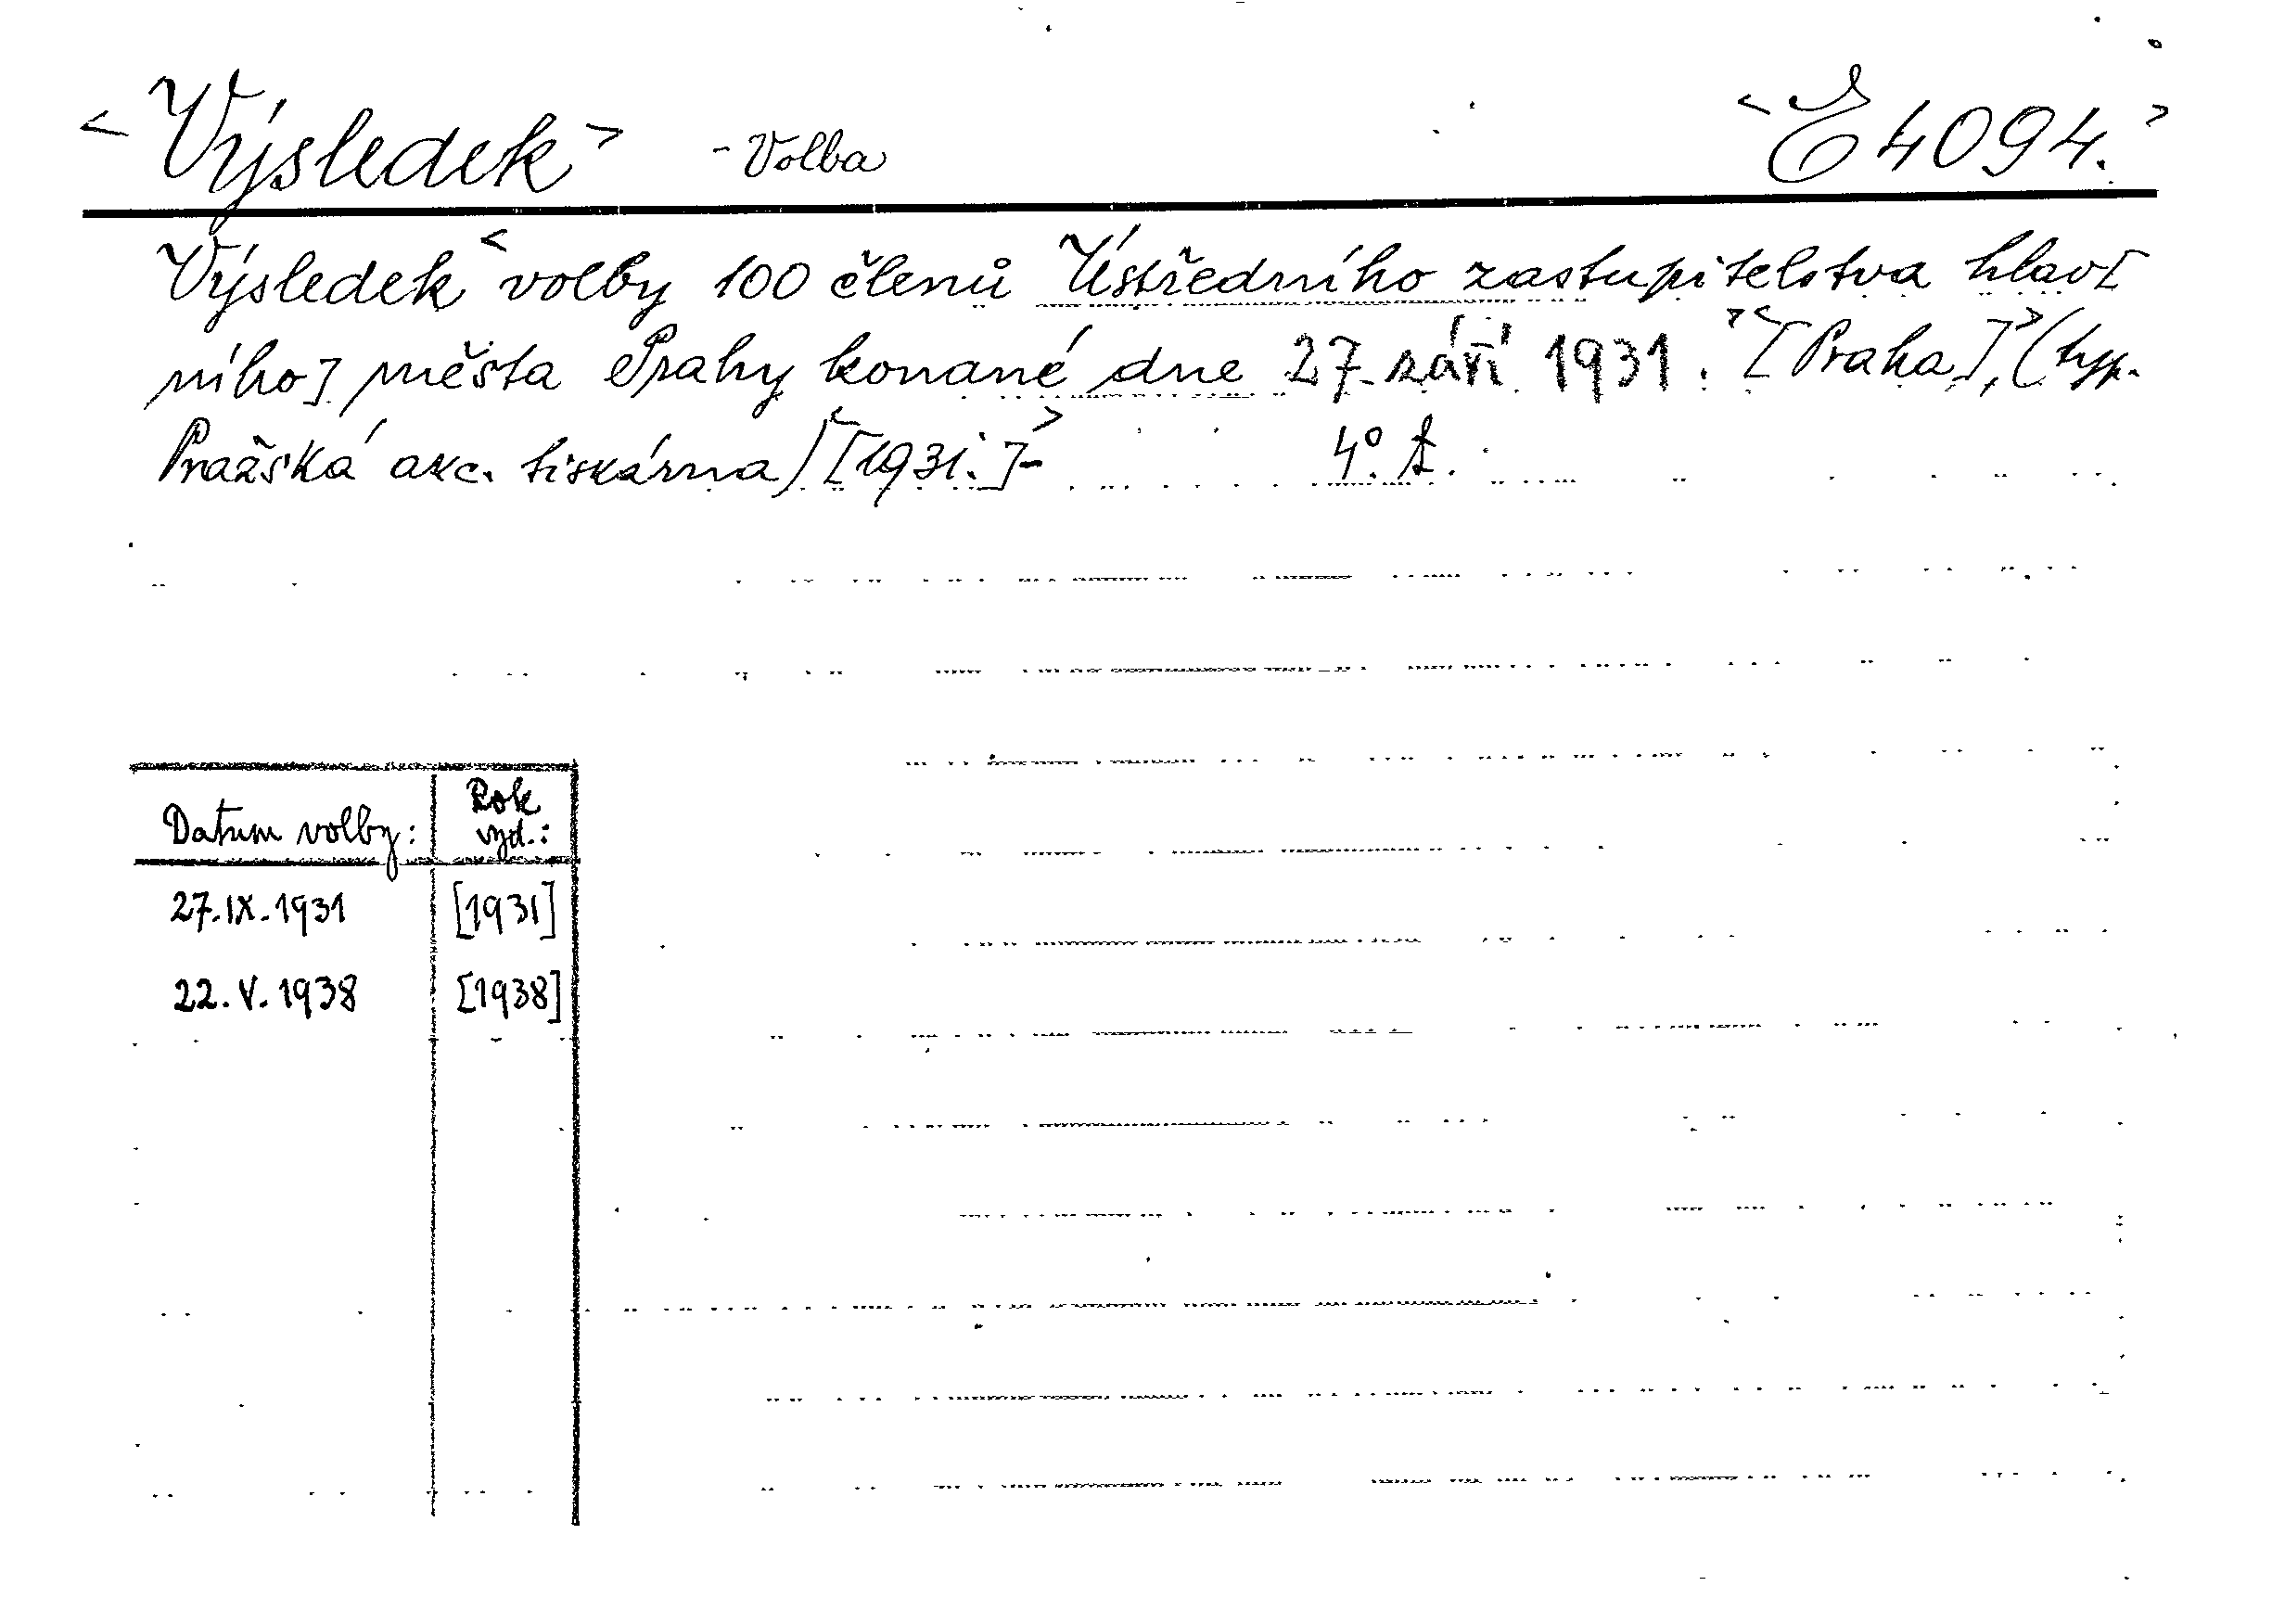 <Výsledek> - Volba <E 4094.>
Výsledek < volby 100 členů Ústředního zastupitelstva hlav[
ního] města Prahy konané dne 27. září 1931. > <[Praha],> (typ.
Pražská akc. tiskárna) <[1931.]-> 4°.
Datum volby: Rok vyd.:
27.IX.1931 [1931]
22.V.1938 [1938]